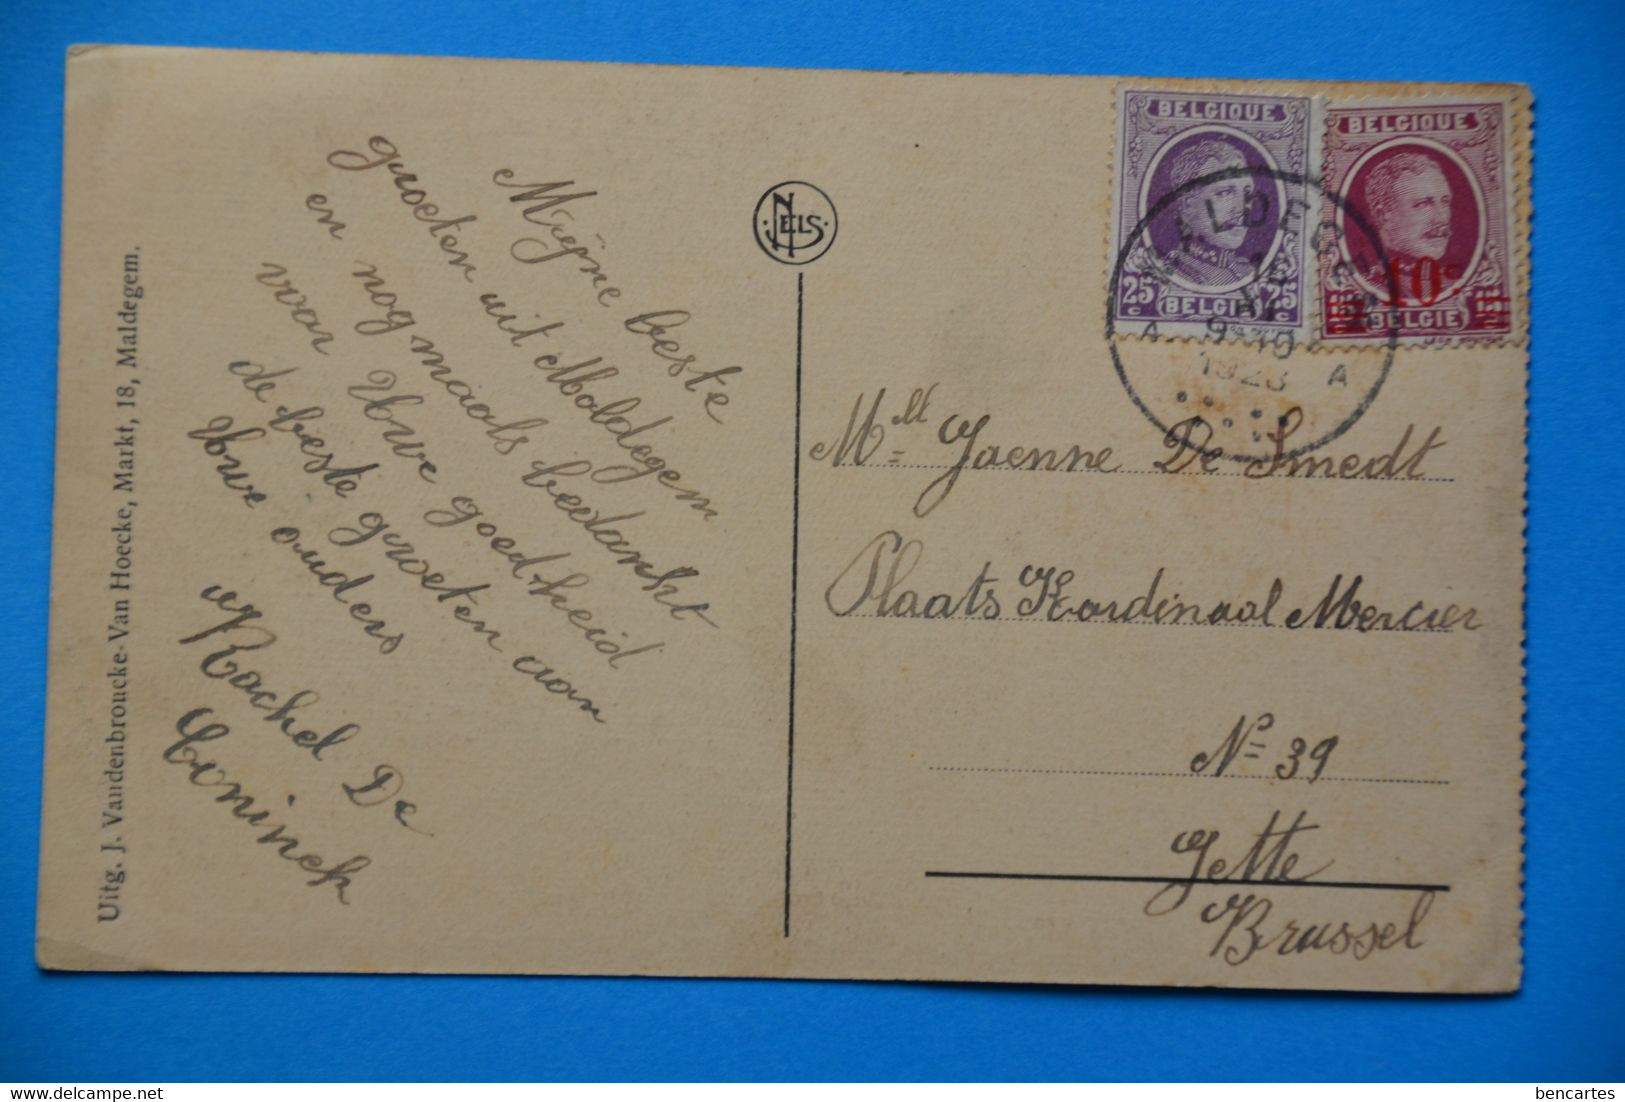 Uitg. J. Vandenbroucke-Van Hoecke, Markt, 18, Maldegem.
Mijne beste
groeten uit Maldegem
en nog maals bedankt
voor Uwe goedheid
de beste groeten aan
Uwe ouders
Rachel De
Coninck
NELS
BELGIQUE
25c BELGIË 25c
BELGIQUE
10c
BELGIE
MALDEGEM
A A
9-10
Mlle Jaenne De Smedt
Plaats Kardinaal Mercier
No 39
Jette
Brussel
bencartes